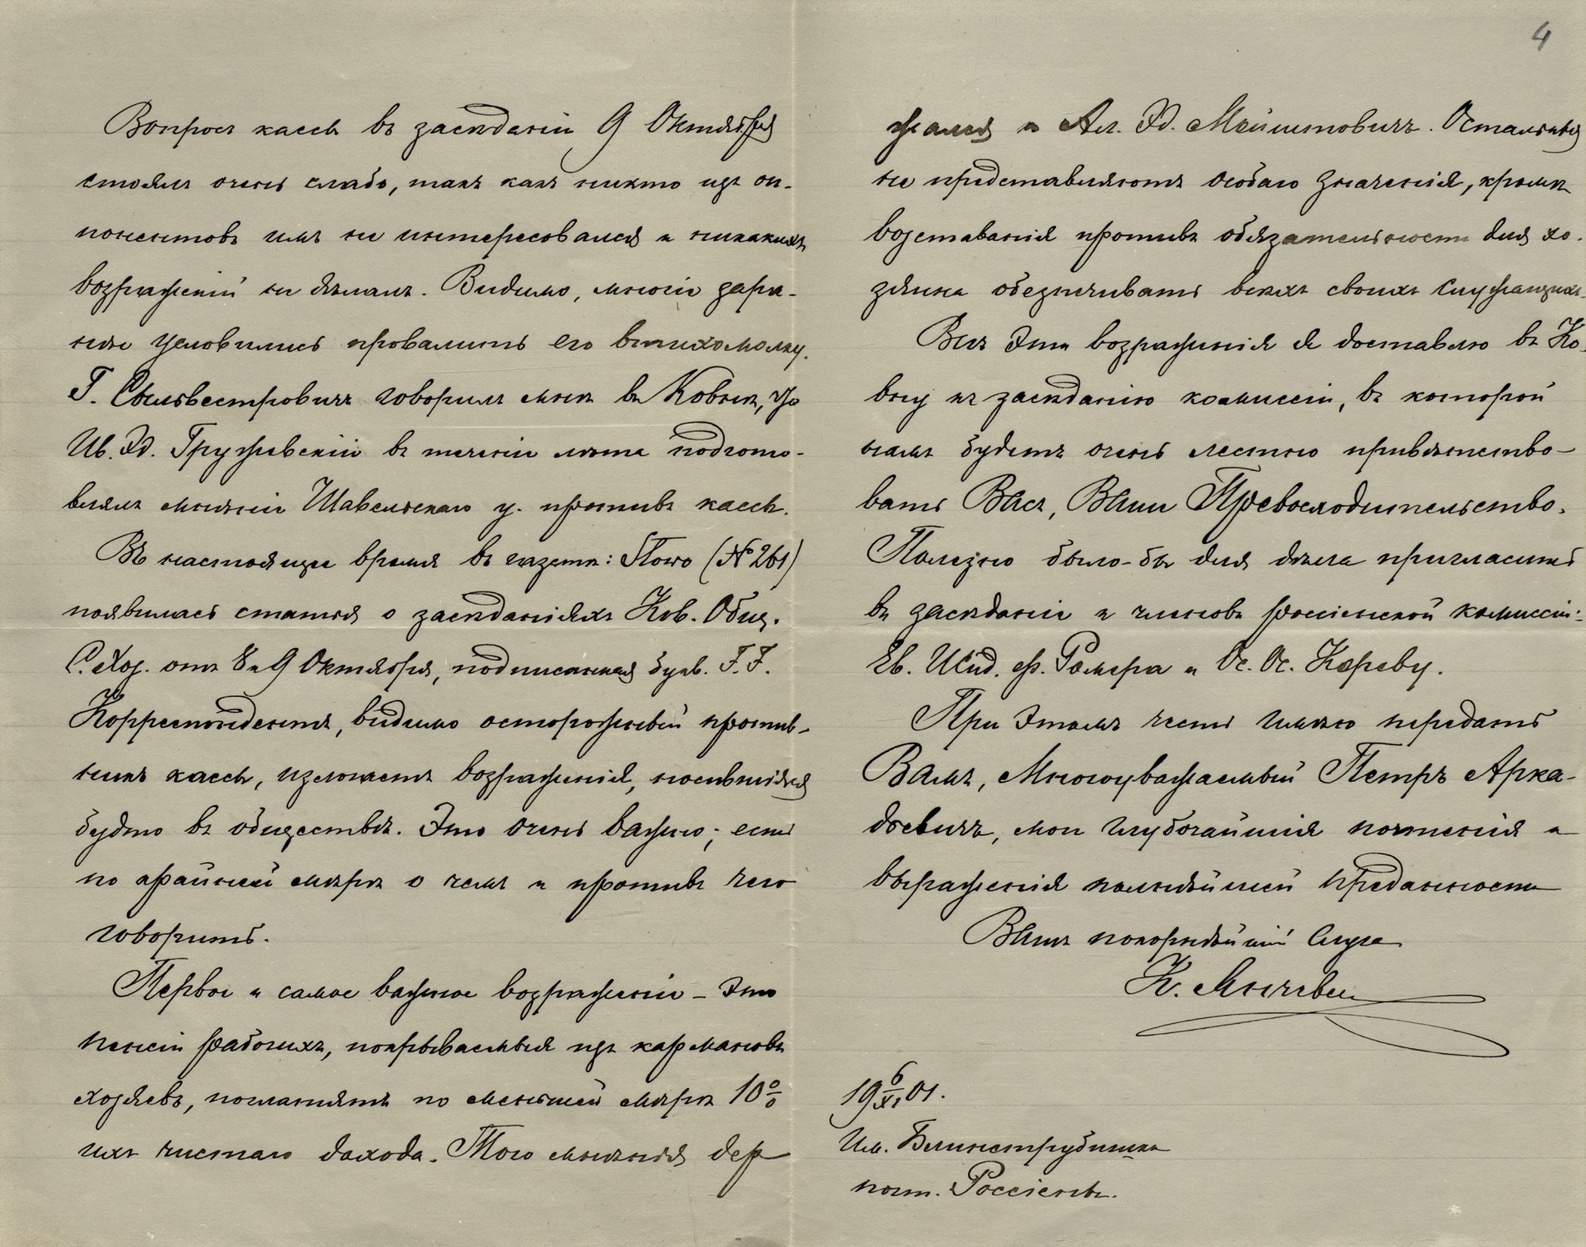 Вопросъ кассъ въ засѣданіи 9 Октября
стоялъ очень слабо, такъ какъ никто изъ оп-
понентовъ имъ не интересовался и никакихъ
возраженій не дѣлалъ. Видимо, многіе зара-
нѣе условились провалить его втихомолку.
Г. Сыльвестровичъ говорилъ мнѣ въ Ковнѣ, что
Ив. Эд. Гружевскій въ теченіи лѣта подгото-
влялъ мнѣніе Шавельскаго у. противъ кассъ.
Въ настоящее время въ газетѣ: Słowo (№ 261)
появилась статья о засѣданіяхъ Ков. Общ.
С. Хоз. отъ 8 и 9 Октября, подписанная букв. F. F.
Корреспондентъ, видимо осторожный против-
никъ кассъ, излогаетъ возраженія, носившіяся
будто въ обществѣ. Это очень важно; есть
по крайней мѣрѣ о чемъ и противъ чего
говорить.
Первое и самое важное возраженіе – это
пенсіи рабочихъ, покрываемыя изъ кармановъ
хозяевъ, поглатятъ по меньшей мѣрѣ 10%
ихъ чистаго дохода. Того мнѣнія дер
4
жался и Ал. Эд. Мейштовичъ. Остальныя
не представляютъ особаго значенія, кромѣ
возставанія противъ обязательности для хо-
зяина обезпечивать всѣхъ своихъ служащихъ.
Всѣ эти возраженія я доставлю въ Ко-
вну къ засѣданію коммиссіи, въ которой
намъ будетъ очень лестно привѣтство-
вать Васъ, Ваше Превосходительство.
Полезно было-бы для дѣла пригласить
въ засѣданіе и членовъ россіенской коммиссіи:
Ев. Исид. ф. Ромера и Ос. Ос. Кореву.
При этомъ честь имѣю передать
Вамъ, Многоуважаемый Петръ Арка-
дьевичъ, мои глубочайшія почтенія и
выраженія полнѣйшей преданности
Вашъ покорнѣйшій слуга
К.
19 6/XI 01.
Им. Блинструбишки
почт. Россіены.